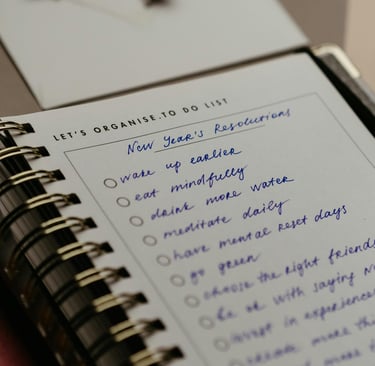 LET'S ORGANISE.TO DO LIST
New Year's Resolutions
wake up earlier
eat mindfully
drink more water
meditate daily
have mental reset days
go green
choose the right friends
be ok with saying
invest in experience
create more